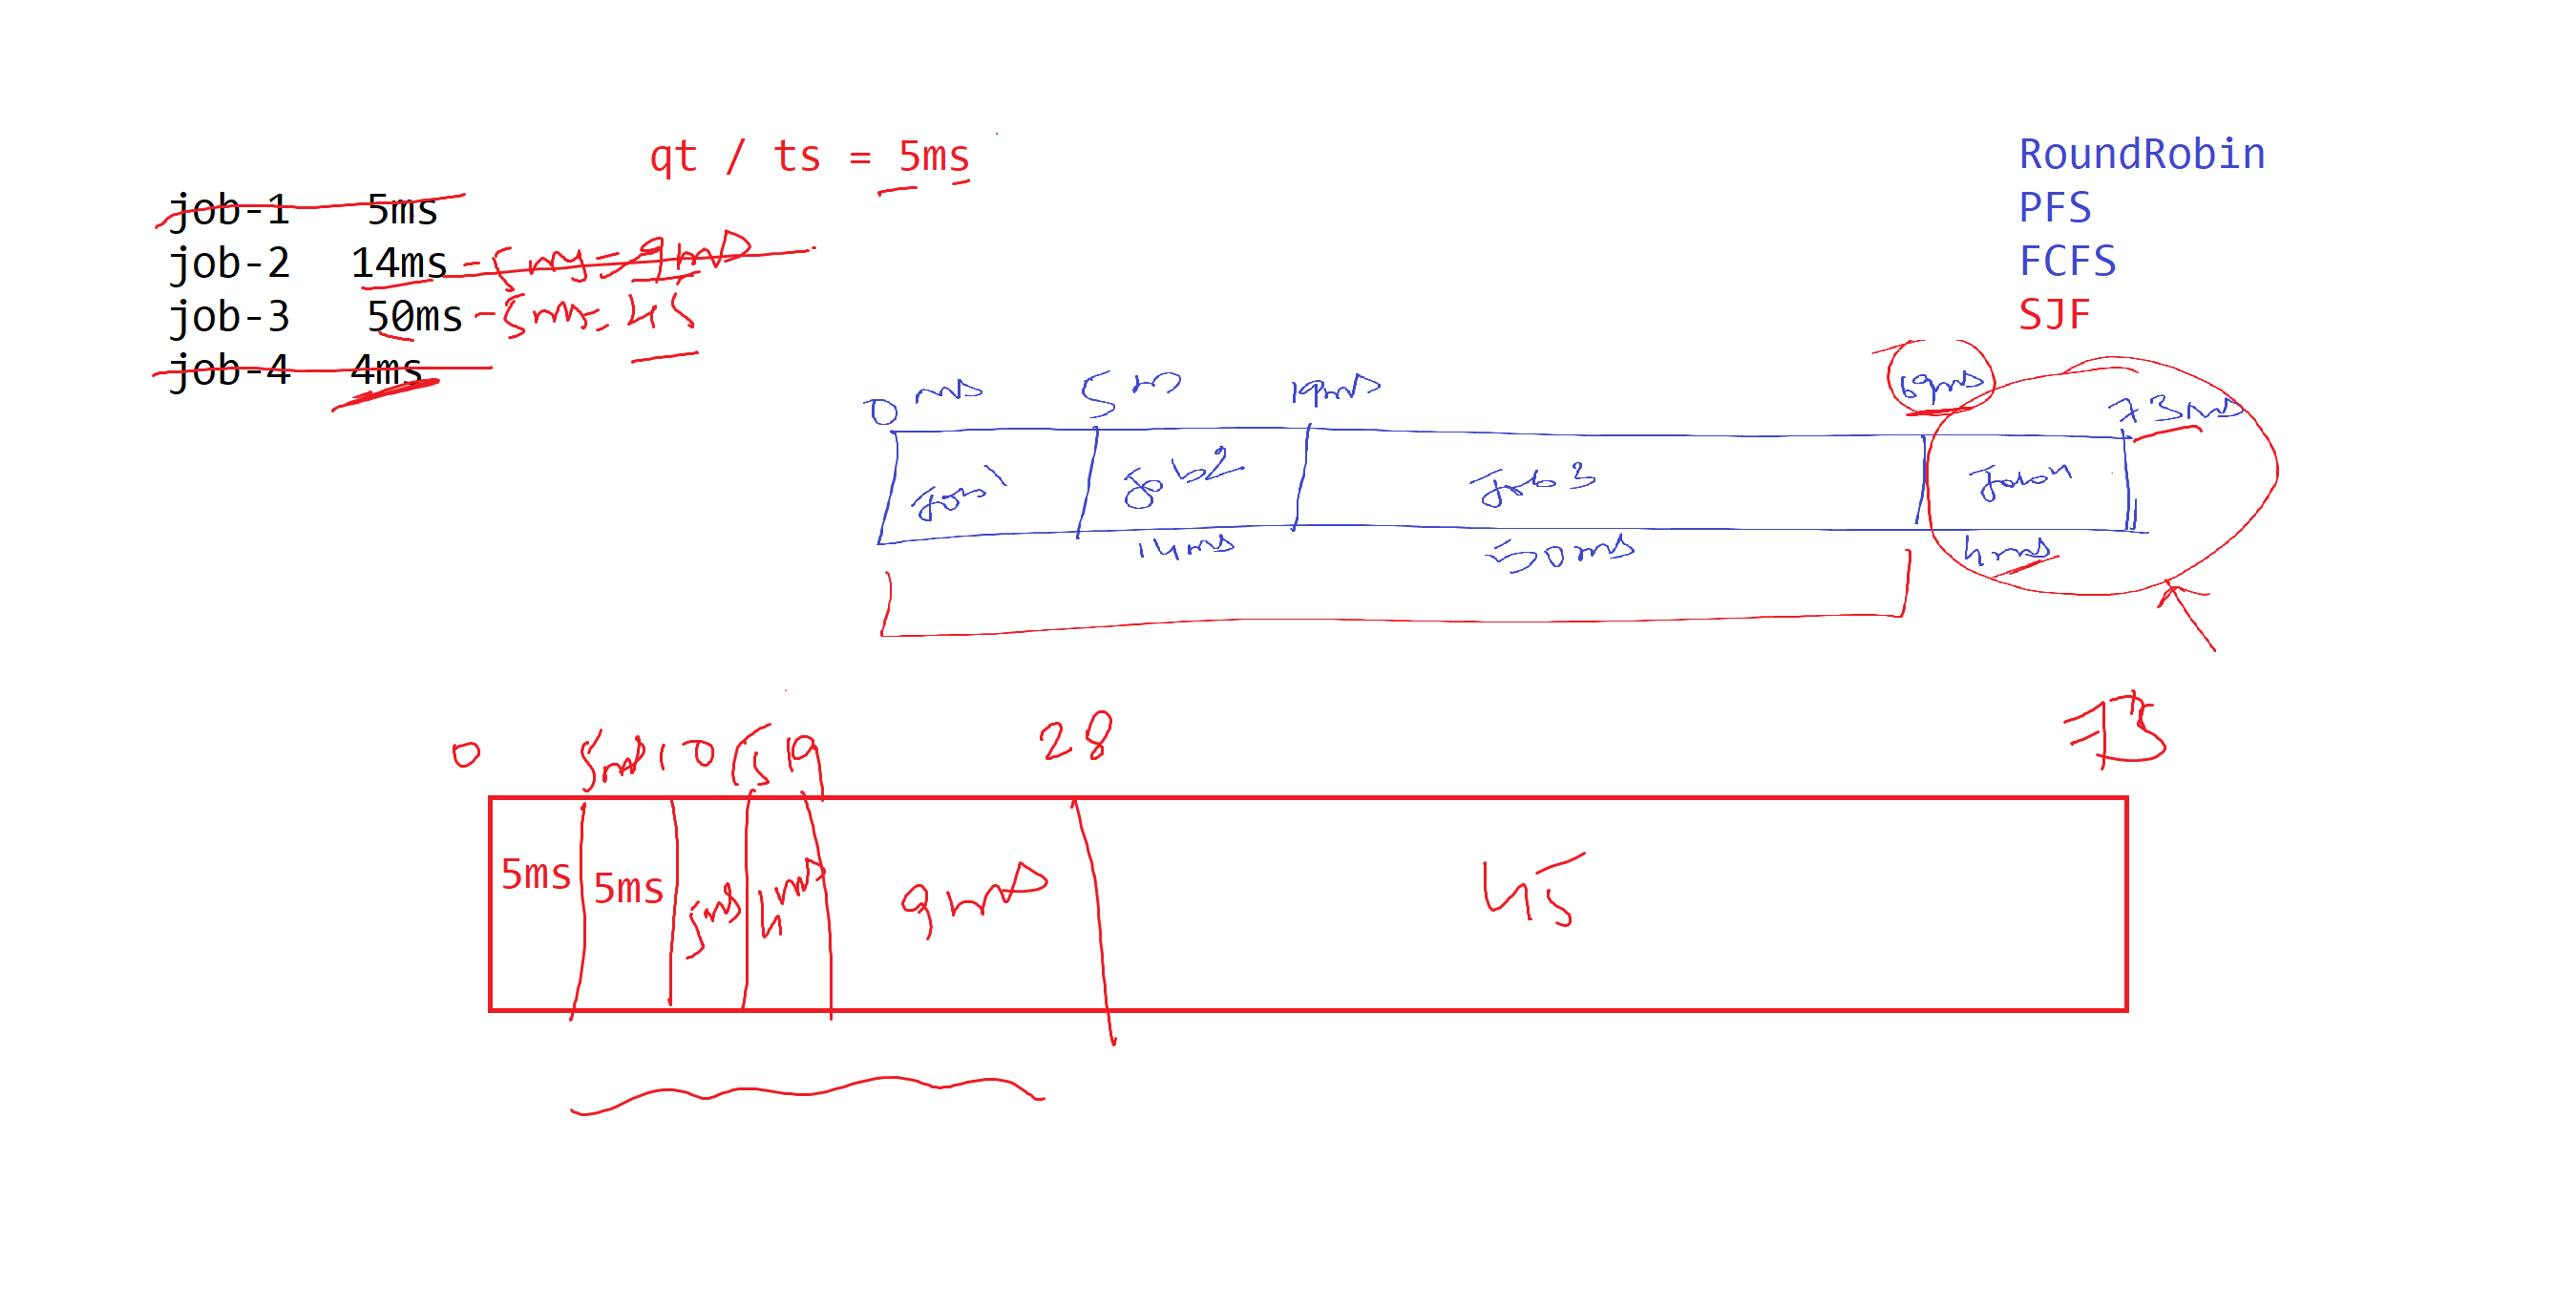 qt / ts = 5ms
job-1 5ms
job-2 14ms - 5ms = 9ms
job-3 50ms - 5ms = 45
job-4 4ms
RoundRobin
PFS
FCFS
SJF
0 ms 5 m 19ms 69ms 73ms
Job1 Job2 Job3 Job4
14ms 50ms 4ms
0 5ms 10 15 19 28 73
5ms 5ms 5ms 4ms 9ms 45